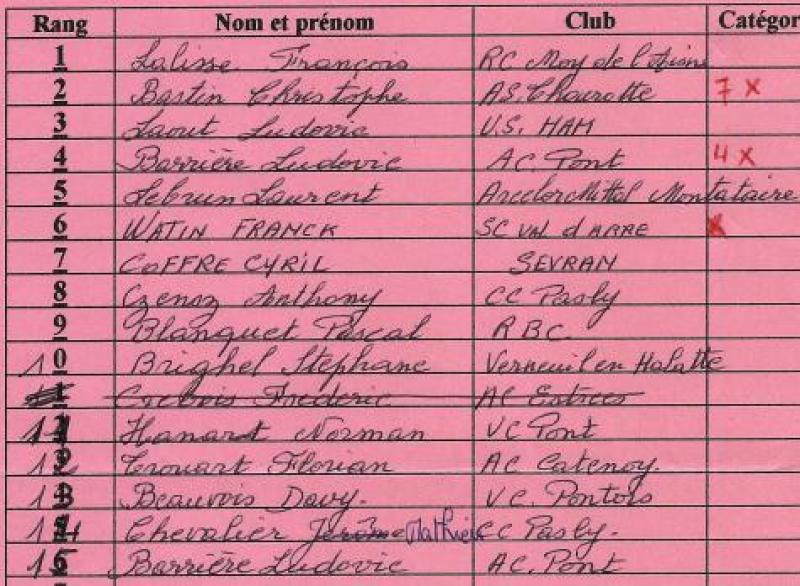 Rang Nom et prénom Club Catégor
1 Lalisse François RC Moy de l'Aisne
2 Bastin Christophe AS. Chourotte 7 X
3 Laout Ludovic U.S. HAM
4 Barrière Ludovic AC. Pont 4 X
5 Lebrun Laurent ArcelorMittal Montataire
6 WATIN FRANCK SC VAL d ARRE X
7 COFFRE CYRIL SEVRAN
8 Czensz Anthony CC Pasly
9 Blanquet Pascal RBC.
10 Brighel Stéphane Verneuil en Halatte
Frédéric AC Estrées
11 Hanart Norman VC Pont
12 Trouart Florian AC Catenoy.
13 Beauvois Davy. V.C. Pontois
14 Chevalier Jérôme Mathieu CC Pasly.
15 Barrière Ludovic AC. Pont